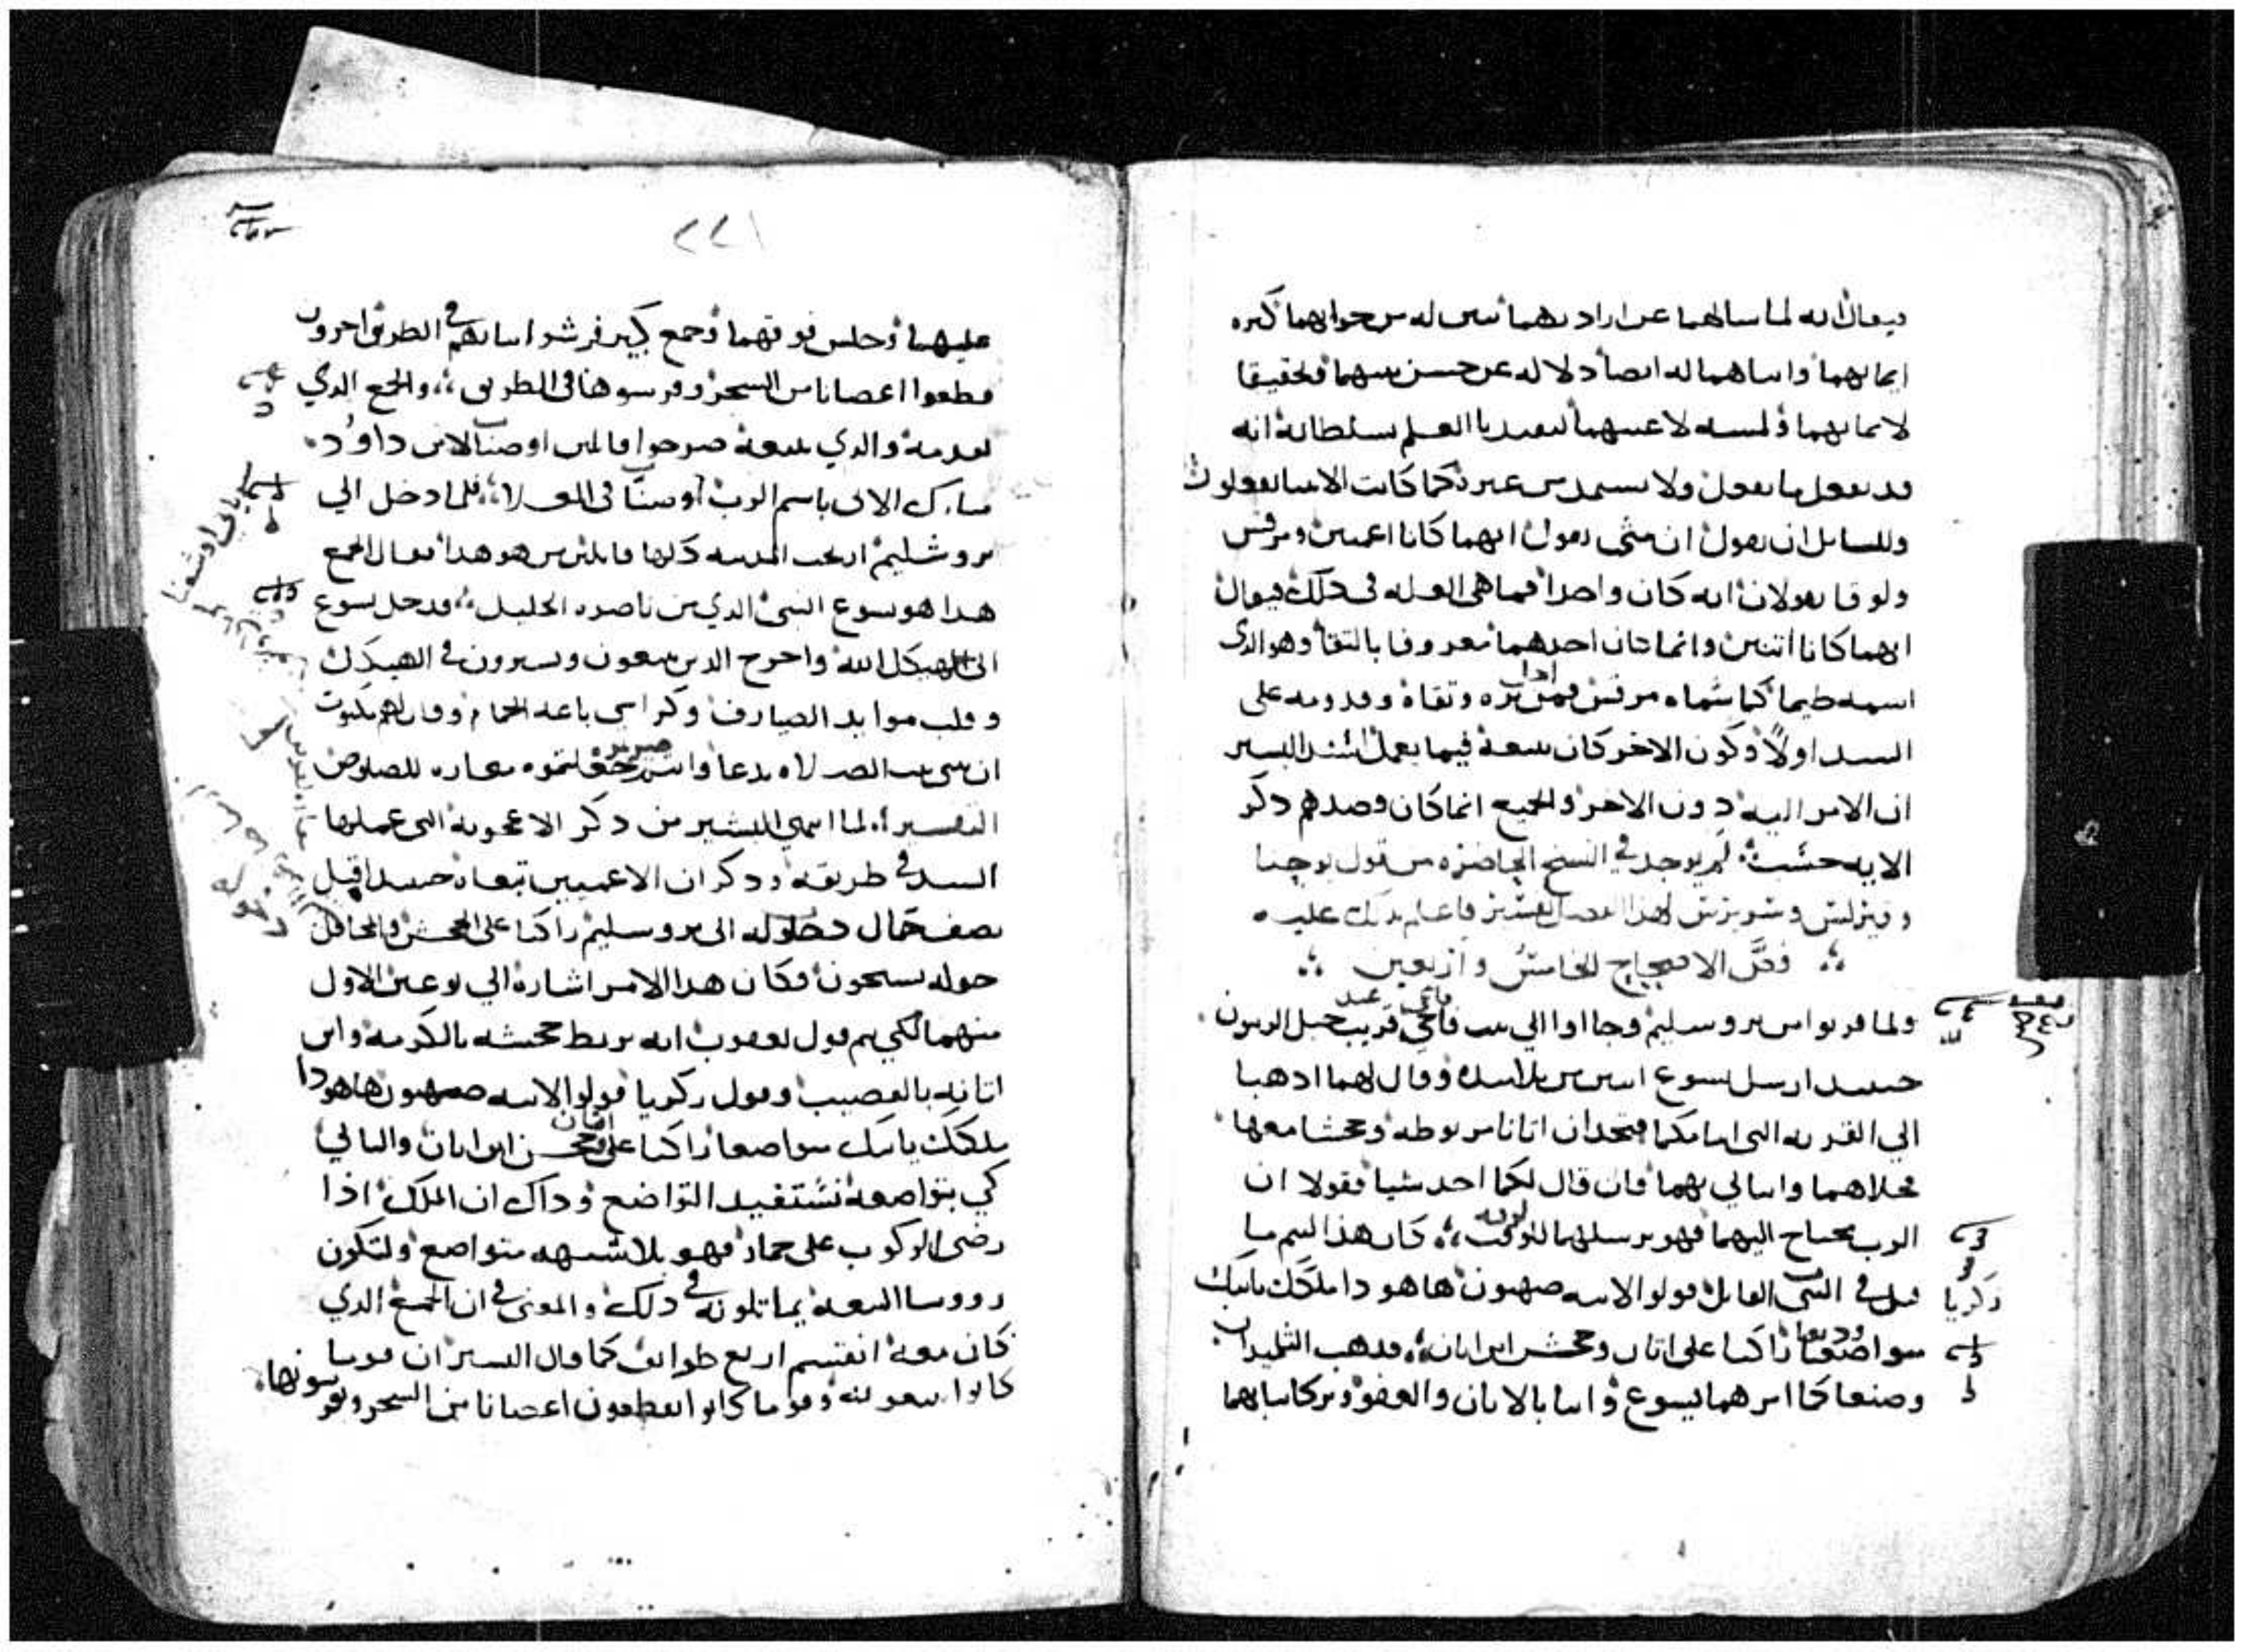 فيقال انه لما سالهما عن ارادتهما تبين له من جوابهما كثره
ايمانهما واتباعهما له ايضا دلاله عن حسن نيتهما وتحقيقا
لايمانهما ولمسه لاعينهما ليفيدنا العلم بسلطانه انه
قد يفعل ما يفعل ولا يستمد من غيره كما كانت الانبيا يفعلون
وللسايل ان يقول ان متى يقول انهما كانا اعميين ومرقس
ولوقا يقولان انه كان واحدا فما هي العله في ذلك فيقال
انهما كانا اثنين وانما كان احدهما معروفا بالتقا وهو الذي
اسمه طيما كما سماه مرقس وتقاه وقدومه على
السيد اولا وكون الاخر كان يتبعه فيما يعمل اسند البشير
ان الامر اليه دون الاخر والجميع انما كان قصدهم ذكر
الايه حسب لم يوجد في النسخ الحاضره من قول يوحنا
لهذا الفصل فاعلم بذلك عليه
فصل الاصحاح الخامس واربعين
ولما قربوا من يروسليم وجاوا الي بيت فاجي قريب جبل الزيتون
حينيد ارسل يسوع اثنين من تلاميذه وقال لهما اذهبا
الي القريه التي امامكما فتجدان اتانا مربوطه وجحشا معها
فحلاهما واتياني بهما فان قال لكما احد شيا فقولا ان
الرب محتاج اليهما فهو يرسلهما للوقت كان هذا ليتم ما
قيل في النبي القايل قولوا لابنه صهيون هاهو دا ملكك ياتيك
زكريا
متواضعا راكبا على اتان وجحش ابن اتان فذهب التلميدان
وديعا
وصنعا كما امرهما يسوع واتيا بالاتان والعفو وتركا ثيابهما
٢٢١
عليهما وجلس فوقهما وجمع كبير فرشوا ثيابهم في الطريق واخرون
قطعوا اغصانا من الشجر وفرشوها في الطريق والجمع الذي
تقدمه والذي يتبعه صرخوا قايلين اوصنا لابن داوود
مبارك الاتي باسم الرب اوصنا في العلا فلما دخل الي
يروشليم ارتجت المدينه كلها قايلين من هو هذا فقال الجمع
هذا هو يسوع النبي الذي من ناصره الجليل فدخل يسوع
الى هيكل الله واخرج الذين يبيعون ويشترون في الهيكل
وقلب موايد الصيارف وكراسي باعه الحمام وقال لهم مكتوب
ان بيتي بيت الصلاه يدعا وانتم جعلتموه مغاره للصوص
التفسير لما انتهى البشير من ذكر الاعجوبه التي عملها
السيد في طريقه وذكر ان الاعميين تبعاه حينيد اقبل
يصف حال دخوله الى يروسليم راكبا على الجحش والمحافل
حوله يسبحون فكان هذا الامر اشاره الي نوعين الاول
منهما لكي يتم قول يعقوب انه يربط جحشه بالكرمه وابن
اتانه بالقضيب وقول زكريا قولوا لابنه صهيون هاهودا
ملكك ياتيك متواضعا راكبا على جحش ابن اتان والثاني
كي بتواضعه نستفيد التواضع وذاك ان الملك اذا
رضى الركوب على حمار فهو بلا شبهه متواضع ولتكون
رووسا البيعه بما تلونه في ذلك والمعنى في ان الجمع الذي
كان معه انقسم اربع طوايف كما قال البشير ان قوما
كانوا يتبعونه وقوما كانوا يقطعون اغصانا من الشجر ويفرشونها